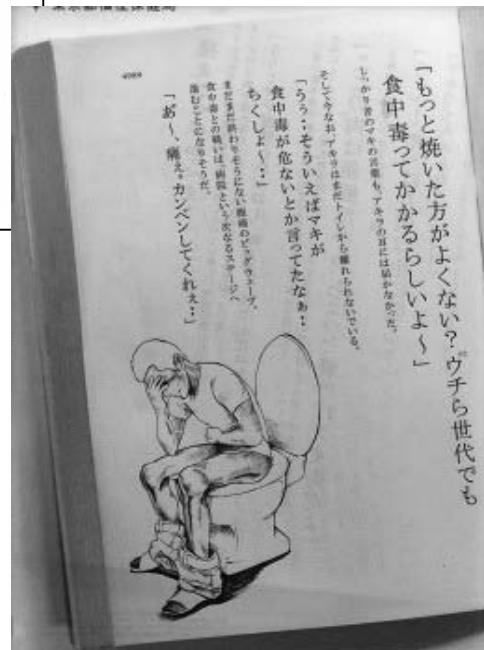 東京都福祉保健局
「もっと焼いた方がよくない？ウチら世代でも
食中毒ってかかるらしいよ〜」
しっかり者のマキの言葉も、アキラの耳には届かなかった。
そして今なお、アキラはまだトイレから離れられないでいる。
「うぅ‥そういえばマキが
食中毒が危ないとか言ってたなぁ‥
ちくしょ〜‥」
まだまだ終わりそうにない腹痛のビッグウェーブ。
食中毒との戦いは、病院という次なるステージへ
進むことになりそうだ。
「あ゛〜、痛ぇ。カンベンしてくれぇ‥」